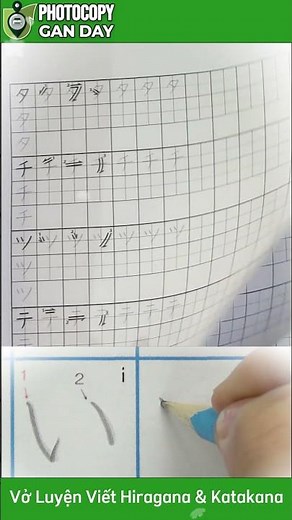 PHOTOCOPY
GAN DAY
タ タ タ タ タ タ
タ
タ
チ チ チ チ チ チ チ
チ
チ
ツ ツ ツ ツ ツ ツ ツ
ツ
ツ
テ テ テ テ テ テ テ
1 2 i
い
Vở Luyện Viết Hiragana & Katakana